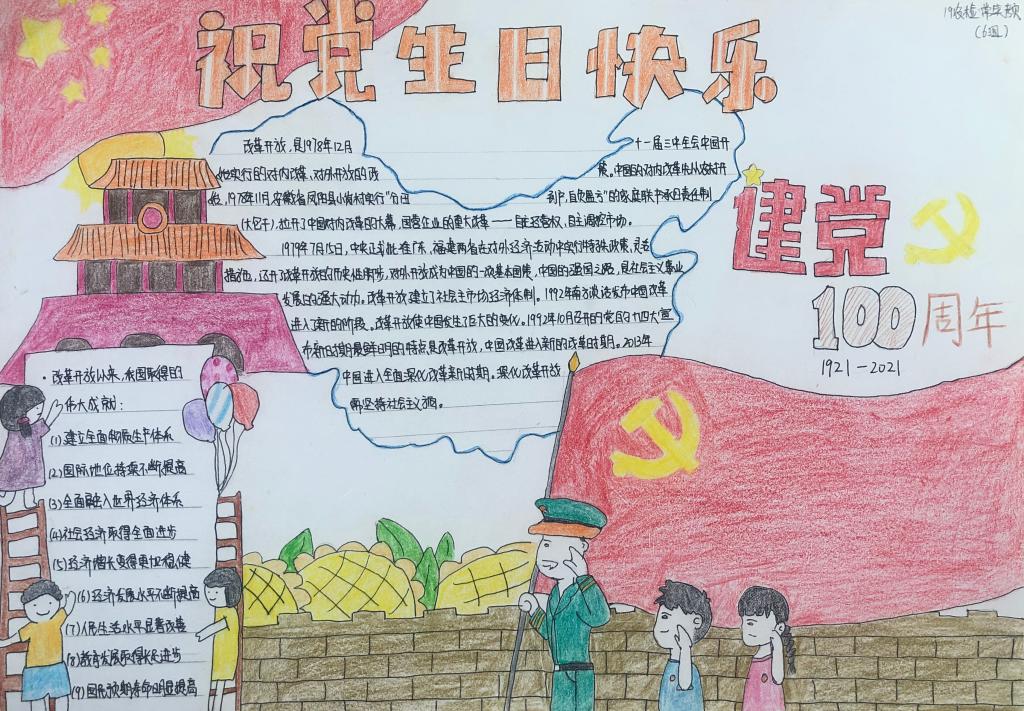 祝党生日快乐
19级检
(6组)
改革开放,是1978年12月十一届三中全会中国开
始实行的对内改革、对外开放的政策。中国的对内改革先从农村开
始,1978年11月,安徽省凤阳县小岗村实行"分田到户,自负盈亏"的家庭联产承包责任制
(大包干),拉开了中国对内改革的大幕,国营企业的重大改革——自主经营权,自主调控市场。
1979年7月15日,中央正式批准广东、福建两省在对外经济活动中实行特殊政策、灵活
措施,迈开了改革开放的历史性脚步,对外开放成为中国的一项基本国策,中国的强国之路,是社会主义事业
发展的强大动力。改革开放建立了社会主市场经济体制。1992年南方谈话发布中国改革
进入了新的阶段。改革开放使中国发生了巨大的变化。1992年10月召开的党的十四大宣
布新时期最鲜明的特点是改革开放,中国改革进入新的改革时期。2013年
中国进入全面深化改革新时期。深化改革开放
需坚持社会主义方向。
建党
100周年
1921-2021
·改革开放以来,我国取得的
伟大成就:
(1)建立全面物质生产体系
(2)国际地位持续不断提高
(3)全面融入世界经济体系
(4)社会经济取得全面进步
(5)经济增长变得更加稳健
(6)经济发展水平不断提高
(7)人民生活水平显著改善
(8)教育发展取得长足进步
(9)国民预期寿命明显提高